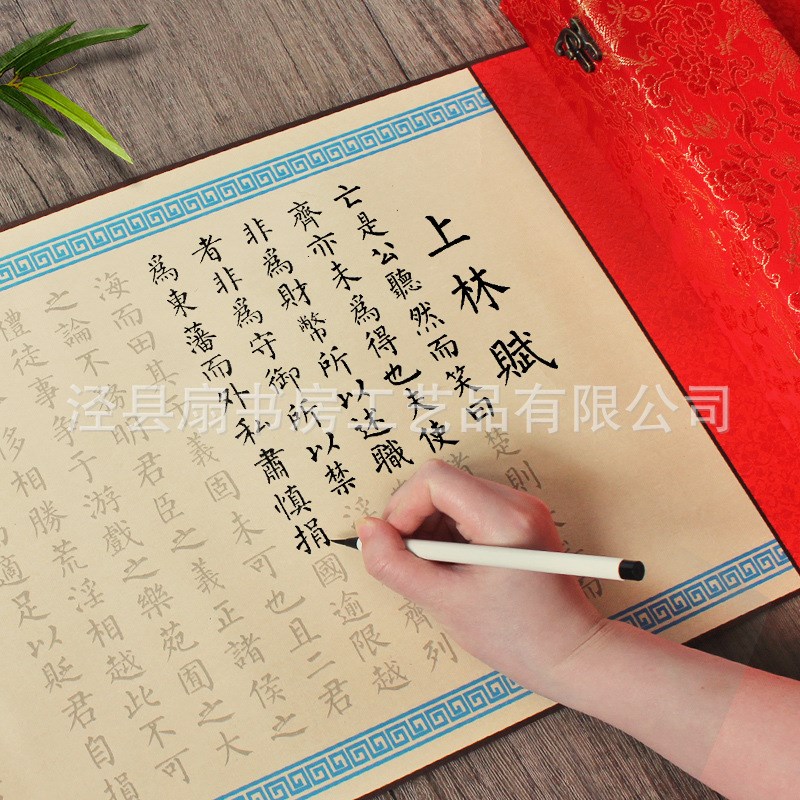 上林賦
亡是公聽然而笑曰楚則
齊亦未為得也夫使諸
非為財幣所以述職
者非為守御所以禁淫齊列
為東藩而外私肅慎捐國逾限越
海而田其義固未可也且二君
之論不務明君臣之義正諸侯之
禮徒事爭于游戲之樂苑囿之大
侈相勝荒淫相越此不可
適足以貶君自損
泾县扇书房工艺品有限公司